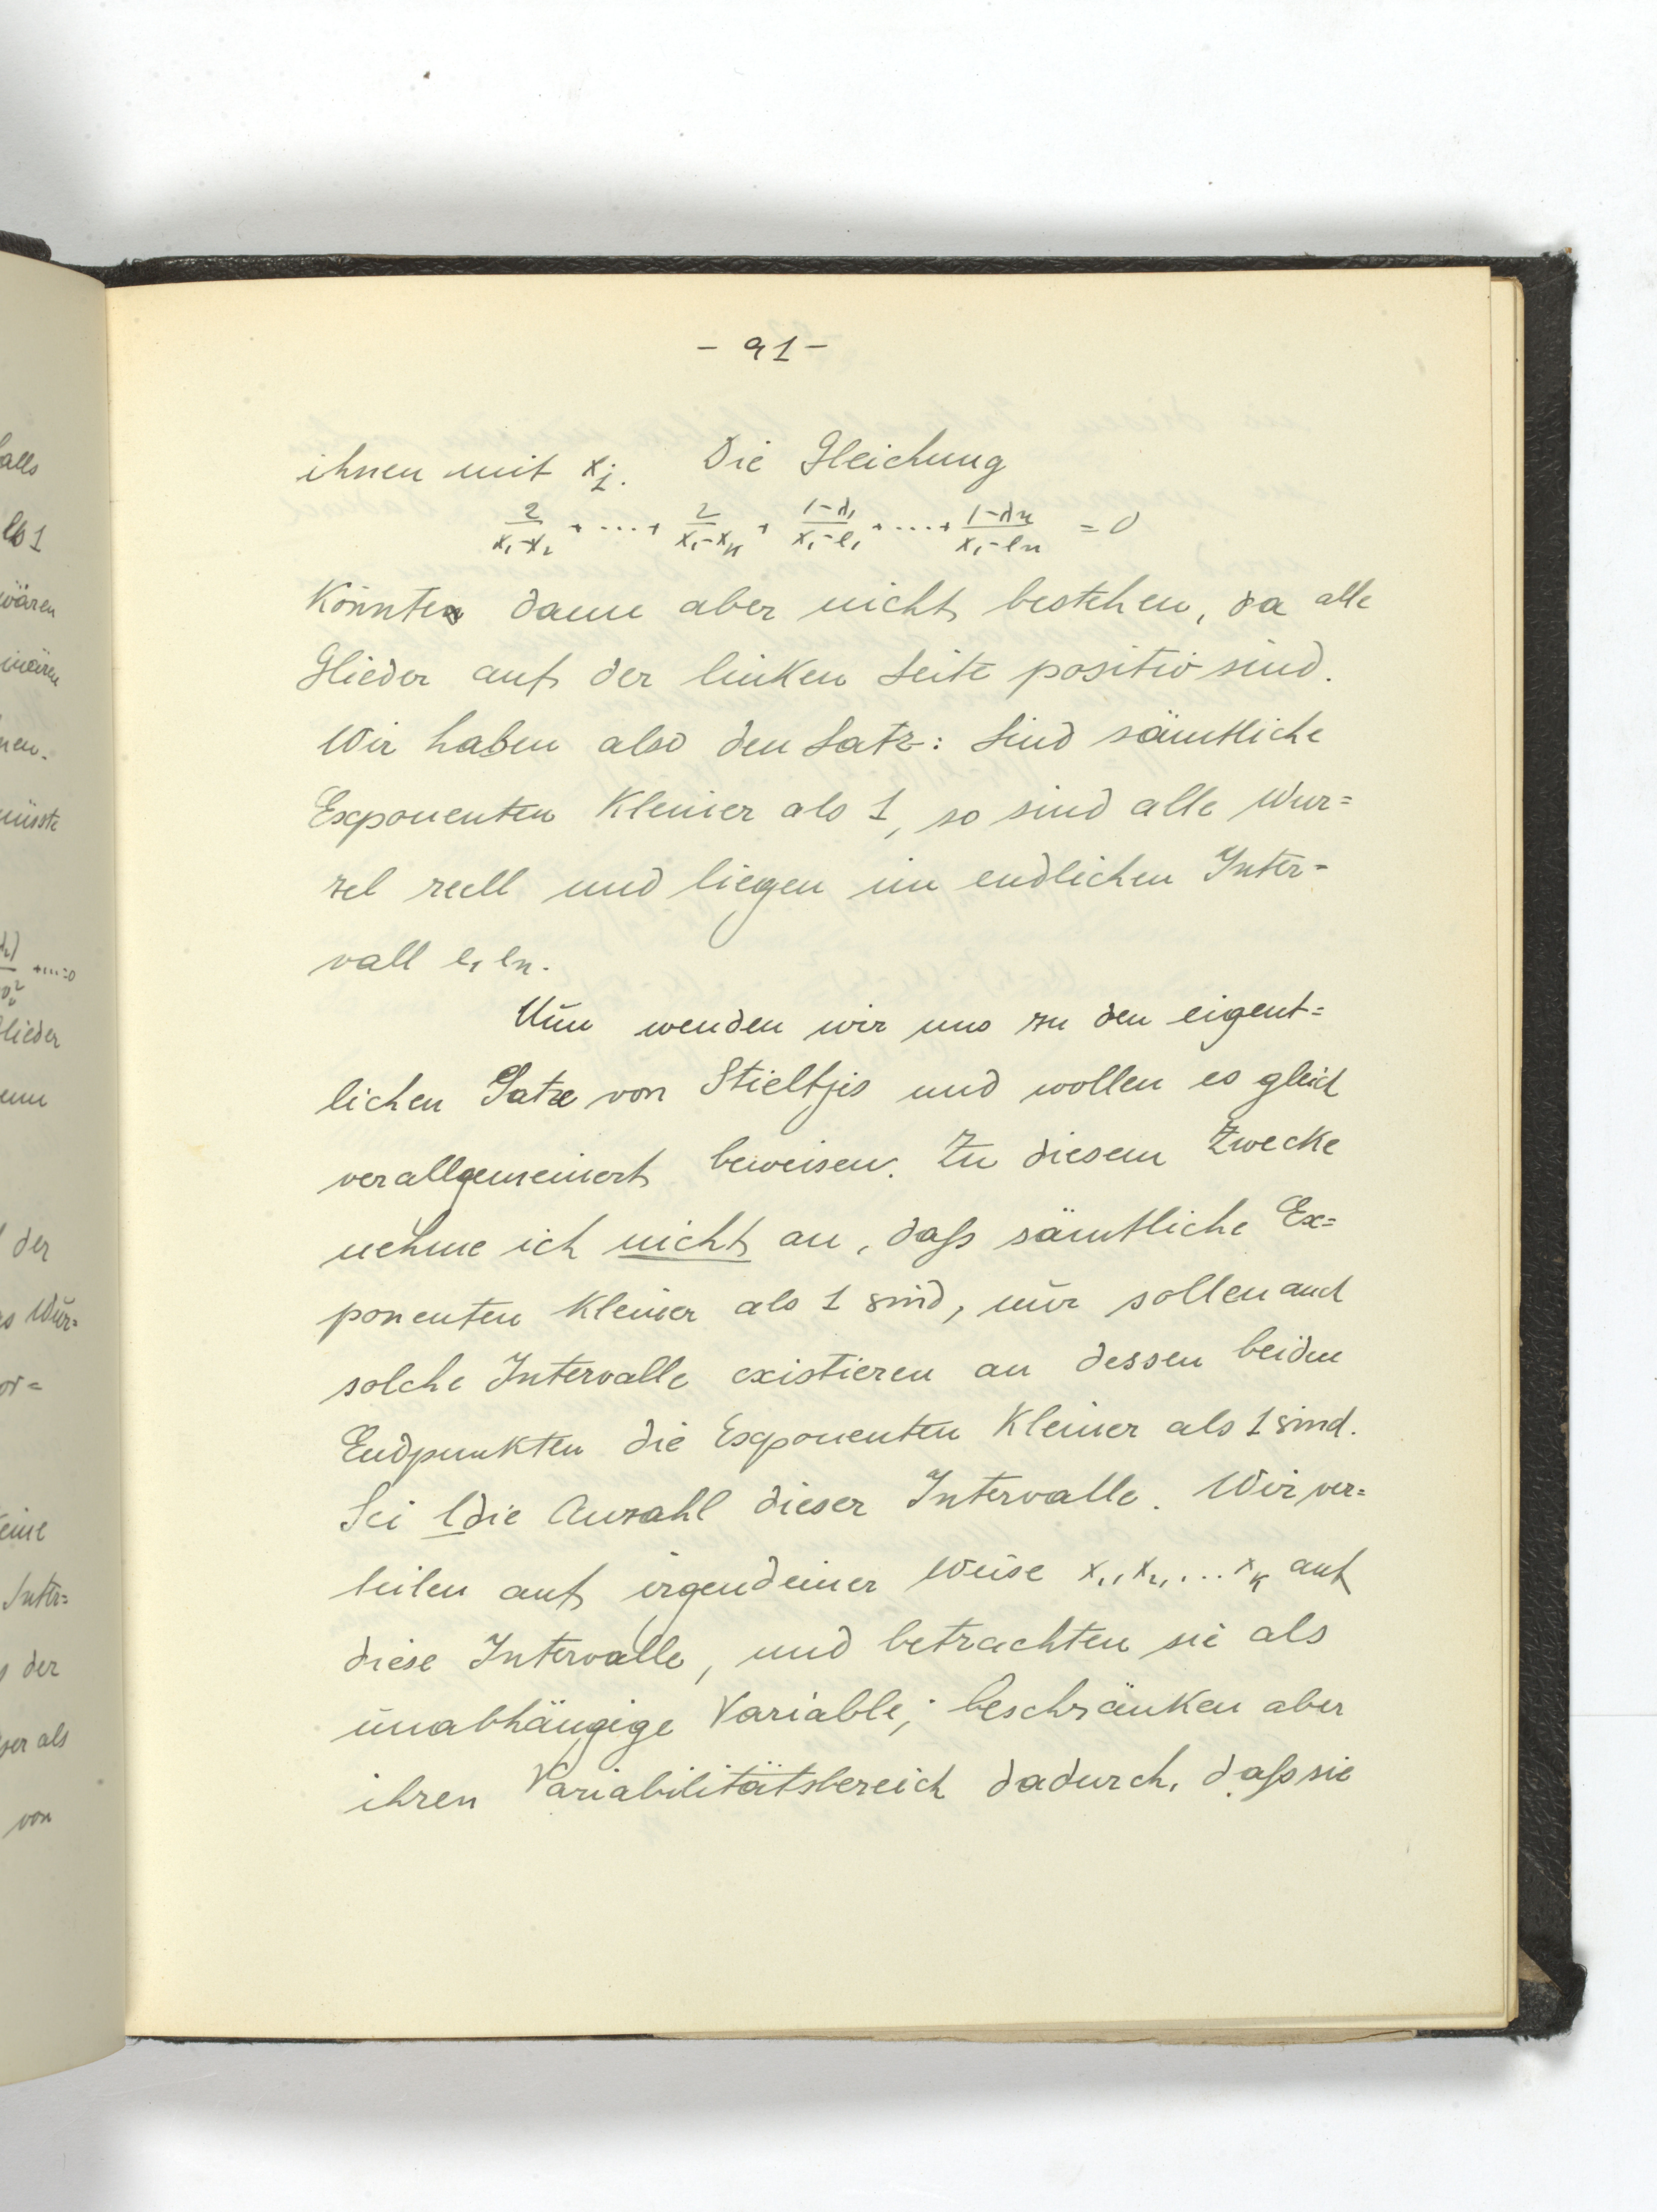 - 91 -
ihnen mit x₁. Die Gleichung
2/(x₁-x₂) + .... + 2/(x₁-xₖ) + (1-λ₁)/(x₁-e₁) + .... + (1-λn)/(x₁-en) = 0
könnte dann aber nicht bestehen, da alle
Glieder auf der linken Seite positiv sind.
Wir haben also den Satz: Sind sämtliche
Exponenten kleiner als 1, so sind alle Wur=
zel reell und liegen im endlichen Inter=
vall e₁ en.
Nun wenden wir uns zu den eigent=
lichen Satze von Stieltjis und wollen es gleich
verallgemeinert beweisen. Zu diesem Zwecke
nehme ich nicht an, daß sämtliche Ex=
ponenten kleiner als 1 sind, nur sollen auch
solche Intervalle existieren an dessen beiden
Endpunkten die Exponenten kleiner als 1 sind.
Sei l die Anzahl dieser Intervalle. Wir ver=
teilen auf irgendeiner Weise x₁, x₂, ... xₖ auf
diese Intervalle, und betrachten sie als
unabhängige Variable; beschränken aber
ihren Variabilitätsbereich dadurch, daß sie
alls
wären
müsste
+...=0
Glieder
der
Wur=
or=
eine
Inter=
der
als
von